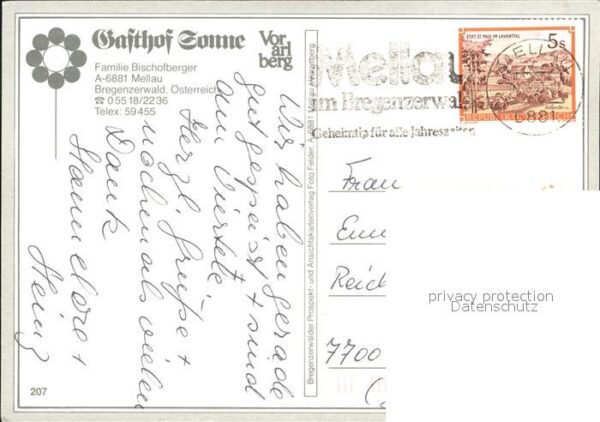 Gasthof Sonne
Vor
arl
berg
Familie Bischofberger
A-6881 Mellau
Bregenzerwald, Österreich
☎ 05518/2236
Telex: 59455
Wir haben gerade
gut gespeist + sind
am Viertele.
Herzl. Grüße +
nochmals vielen
Dank
Hannelore +
Heinz
207
Bregenzerwälder Prospekt- und Ansichtskartenverlag Foto Felder, A-6881 Mellau, Vorarlberg
Mellau
im Bregenzerwald
Geheimtip für alle Jahreszeiten
STIFT ST. PAUL IM LAVANTTAL
5s
REPUBLIK ÖSTERREICH
6881
Frau
Reic
7700
privacy protection
Datenschutz